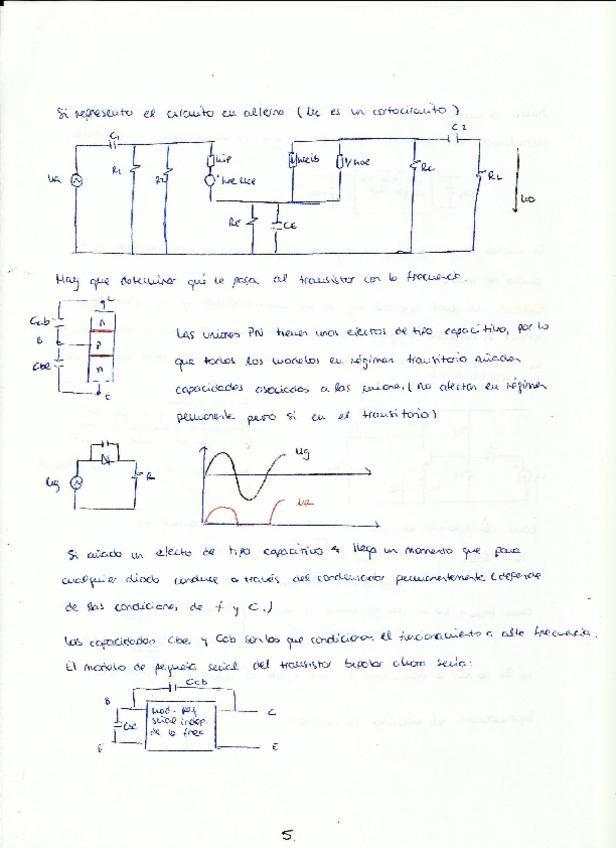 Si represento el circuito en alterna (Ucc es un cortocircuito).
C1
C2
Ug
R1
R2
hie
hre Uce
hfe ib
1/hoe
RC
RL
Uo
RE
CE
Hay que determinar qué le pasa al transistor con la frecuencia.
C
Ccb
n
B
P
Cbe
n
Las uniones PN tienen unos efectos de tipo capacitivo, por lo
que todos los modelos en régimen transitorio añaden
capacidades asociadas a las uniones. (No afectan en régimen
permanente pero si en el transitorio)
Ug
R
Ug
UR
Si añado un efecto de tipo capacitivo llega un momento que para
cualquier diodo conduce a través del condensador permanentemente (depende
de las condiciones de f y C.)
Las capacidades Cbe y Ccb son los que condicionan el funcionamiento a alta frecuencia.
El modelo de pequeña señal del transistor bipolar ahora seria:
Ccb
B
Cbe
mod. peq
señal indep
de la frec
C
E
E
5.